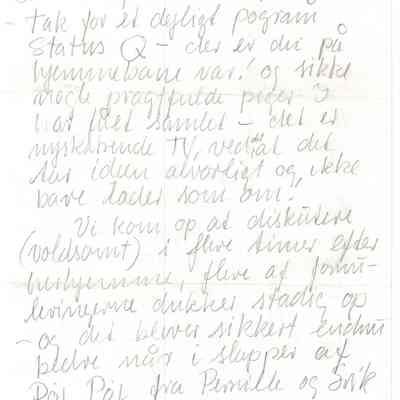 tak for et dejligt program
Status Q – der er du på
hjemmebane var! og sikke
nogle pragtfulde piger I
har fået samlet – det er
nyskabende TV, ved at det
tar ideen alvorligt og ikke
bare lader som om!
Vi kom op at diskutere
(voldsomt) i flere timer efter
herhjemme, flere af formu-
leringerne dukker stadig op
– og det bliver sikkert endnu
bedre når i slapper af
fra Pernille og